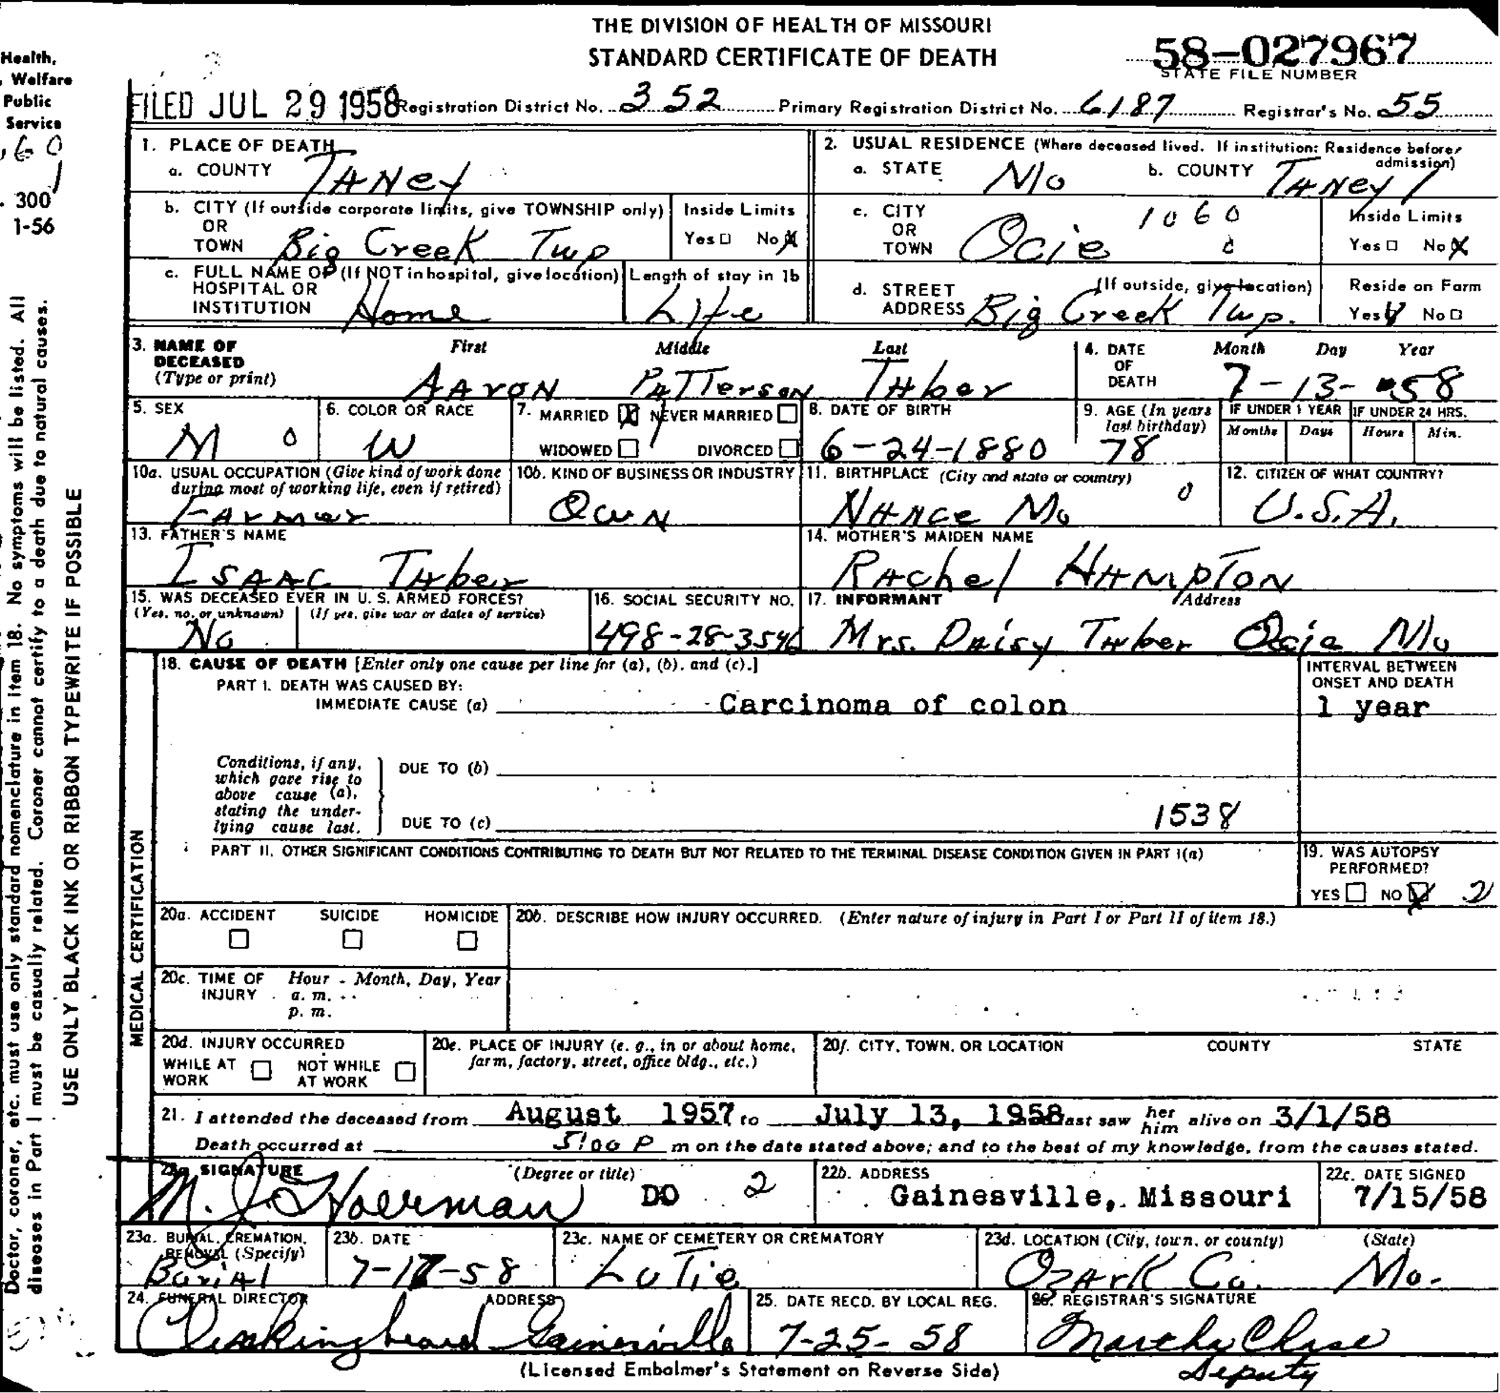 THE DIVISION OF HEALTH OF MISSOURI
STANDARD CERTIFICATE OF DEATH
58-027967
STATE FILE NUMBER
FILED JUL 29 1958 Registration District No. 352 Primary Registration District No. 6187 Registrar's No. 55
Health,
, Welfare
Public
Service
. 300
1-56
1. PLACE OF DEATH
a. COUNTY TANey
2. USUAL RESIDENCE (Where deceased lived. If institution: Residence before admission)
a. STATE Mo b. COUNTY TANey 1
b. CITY (If outside corporate limits, give TOWNSHIP only)
OR
TOWN Big Creek Twp
Inside Limits
Yes □ No X
c. CITY
OR
TOWN Ocie 1060
0
Inside Limits
Yes □ No X
c. FULL NAME OF (If NOT in hospital, give location)
HOSPITAL OR
INSTITUTION Home
Length of stay in 1b
Life
d. STREET
ADDRESS
(If outside, give location)
Big Creek Twp.
Reside on Farm
Yes X No □
3. NAME OF
DECEASED
(Type or print)
First Middle Last
AAron PATTerson TAber
4. DATE
OF
DEATH
Month Day Year
7-13-58
5. SEX
M 0
6. COLOR OR RACE
W
7. MARRIED X NEVER MARRIED □
WIDOWED □ DIVORCED □
8. DATE OF BIRTH
6-24-1880
9. AGE (In years
last birthday)
78
IF UNDER 1 YEAR
Months Days
IF UNDER 24 HRS.
Hours Min.
10a. USUAL OCCUPATION (Give kind of work done
during most of working life, even if retired)
Farmer
10b. KIND OF BUSINESS OR INDUSTRY
Own
11. BIRTHPLACE (City and state or country)
NANce Mo 0
12. CITIZEN OF WHAT COUNTRY?
U.S.A.
13. FATHER'S NAME
ISAAC TAber
14. MOTHER'S MAIDEN NAME
RAchel HAMpTON
15. WAS DECEASED EVER IN U. S. ARMED FORCES?
(Yes, no, or unknown) (If yes, give war or dates of service)
No
16. SOCIAL SECURITY NO.
498-28-3546
17. INFORMANT Address
Mrs. DAisy TAber Ocie Mo
18. CAUSE OF DEATH [Enter only one cause per line for (a), (b), and (c).]
PART I. DEATH WAS CAUSED BY:
IMMEDIATE CAUSE (a) Carcinoma of colon
INTERVAL BETWEEN
ONSET AND DEATH
1 year
Conditions, if any,
which gave rise to
above cause (a),
stating the under-
lying cause last.
DUE TO (b)
DUE TO (c) 1538
PART II. OTHER SIGNIFICANT CONDITIONS CONTRIBUTING TO DEATH BUT NOT RELATED TO THE TERMINAL DISEASE CONDITION GIVEN IN PART I(a)
19. WAS AUTOPSY
PERFORMED?
YES □ NO X 2
20a. ACCIDENT SUICIDE HOMICIDE
20b. DESCRIBE HOW INJURY OCCURRED. (Enter nature of injury in Part I or Part II of item 18.)
20c. TIME OF
INJURY
Hour Month, Day, Year
a. m.
p. m.
20d. INJURY OCCURRED
WHILE AT
WORK □ NOT WHILE
AT WORK □
20e. PLACE OF INJURY (e. g., in or about home,
farm, factory, street, office bldg., etc.)
20f. CITY, TOWN, OR LOCATION COUNTY STATE
21. I attended the deceased from August 1957 to July 13, 1958 last saw her him alive on 3/1/58
Death occurred at 5:00 P m on the date stated above; and to the best of my knowledge, from the causes stated.
22a. SIGNATURE (Degree or title)
M. J. Hoerman DO 2
22b. ADDRESS
Gainesville, Missouri
22c. DATE SIGNED
7/15/58
23a. BURIAL, CREMATION,
REMOVAL (Specify)
Burial
23b. DATE
7-17-58
23c. NAME OF CEMETERY OR CREMATORY
LuTie
23d. LOCATION (City, town, or county) (State)
OzArk Co. Mo.
24. FUNERAL DIRECTOR ADDRESS
Clinkingbeard Gainesville
25. DATE RECD. BY LOCAL REG.
7-25-58
26. REGISTRAR'S SIGNATURE
Martha Chase
Deputy
(Licensed Embalmer's Statement on Reverse Side)
MEDICAL CERTIFICATION
USE ONLY BLACK INK OR RIBBON TYPEWRITE IF POSSIBLE
Doctor, coroner, etc. must use only standard nomenclature in item 18. No symptoms will be listed. All
diseases in Part I must be casually related. Coroner cannot certify to a death due to natural causes.